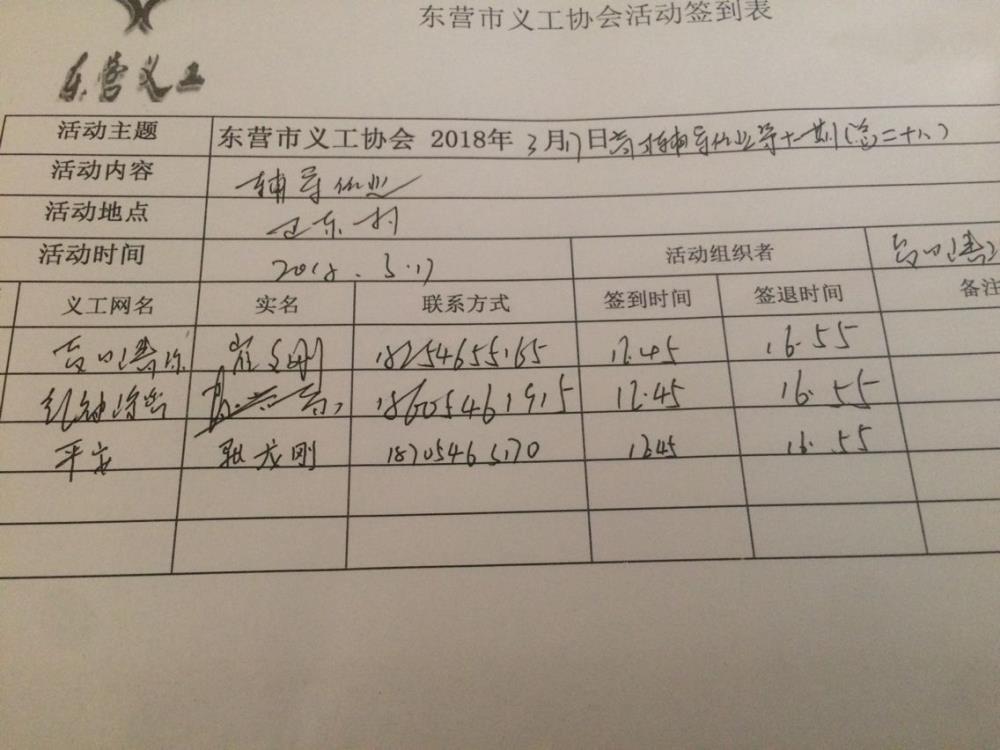 东营市义工协会活动签到表
东营义工
活动主题 东营市义工协会 2018年 3月17日 辅导作业第十一期(总二十八)
活动内容 辅导作业
活动地点
活动时间 2018.3.17 活动组织者
义工网名 实名 联系方式 签到时间 签退时间 备注
崔文刚 18254655165 12.45 16.55
18605461915 12.45 16.55
平安 耿龙刚 1245 16.55